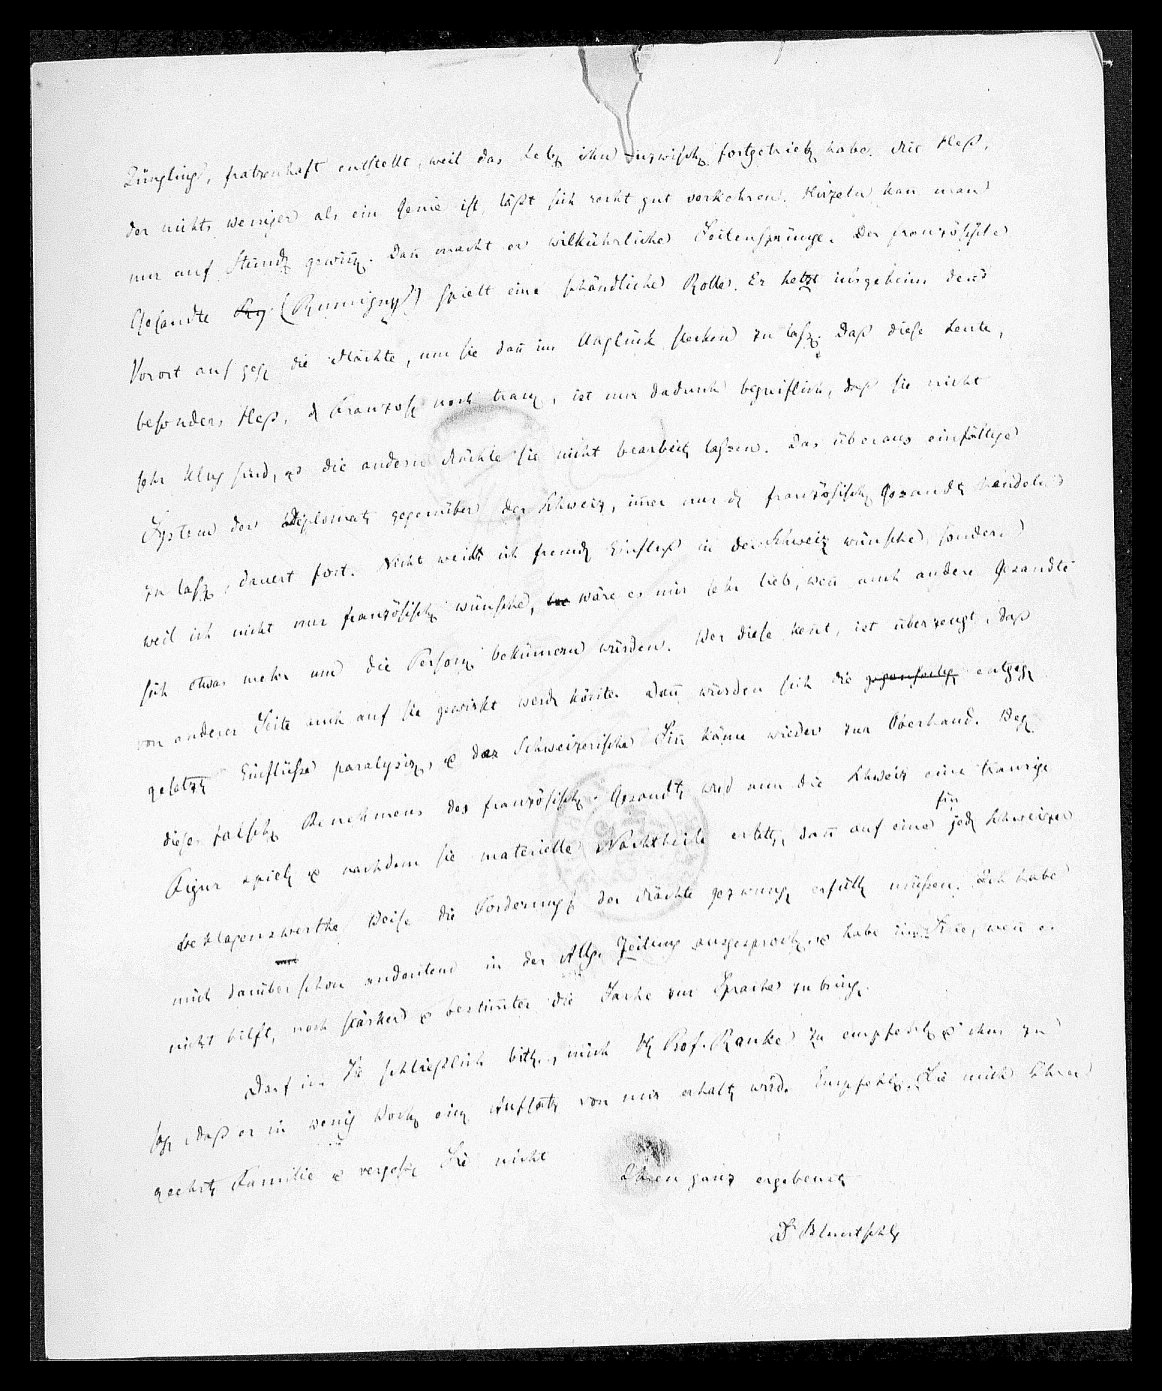 Jüngling, fratzenhaft entstellt, weil das Leben ihn inzwischen fortgetrieben habe. Die Heß,
der nichts weniger als ein Genie ist, läßt sich recht gut verkehren. Hirzeln kan man
nur auf Stunden gewinnen. Dan macht er willkührliche Seitensprünge. Der französische
Gesandte (Rumigny) spielt eine schändliche Rolle. Er hetzt insgeheim den
Vorort auf gegen die Mächte, um sie dan im Unglück stecken zu lassen. Daß diese Leute,
besonders Heß, den Franzosen noch trauen, ist nur dadurch begreiflich, daß sie nicht
sehr klug sind, und die andern Mächte sie nicht bearbeiten lassen. Das überaus einfältige
System der Diplomaten gegenüber der Schweiz, imer nur den französischen Gesandten handeln
zu lassen, dauert fort. Nicht weil ich fremden Einfluß in der Schweiz wünsche, sondern
weil ich nicht nur französischen wünsche, wäre es mir sehr lieb, wen auch andere Gesandte
sich etwas mehr um die Personen bekümern würden. Wer diese kent, ist überzeugt, daß
von anderer Seite auch auf sie gewirkt werden könte. Dan würden sich die entgegen
gesetzten Einflüsse paralysiren, und der Schweizerische Sin käme wieder zur Oberhand. Wegen
dieses falschen Benehmens des französischen Gesandten wird nun die Schweiz eine traurige
Figur spielen und nachdem sie materielle Nachtheile erlitten, dan auf eine für jeden Schweizer
beklagenswerthe Weise die Forderungen der Mächte gezwungen erfüllen müssen. Ich habe
mich darüber schon andeutend in der Allg. Zeitung ausgesprochen und habe im Sine, wen es
nicht hilft, noch stärker und bestimter die Sache zur Sprache zu bringen.
Darf ich Sie schließlich bitten, mich H Prof. Ranke zu empfehlen und ihm zu
sagen, daß er in wenig Wochen einen Aufsatz von mir erhalten wird. Empfehlen Sie mich Ihrer
geehrten Familie und vergessen Sie nicht
Ihren ganz ergebenen
Dr Bluntschli